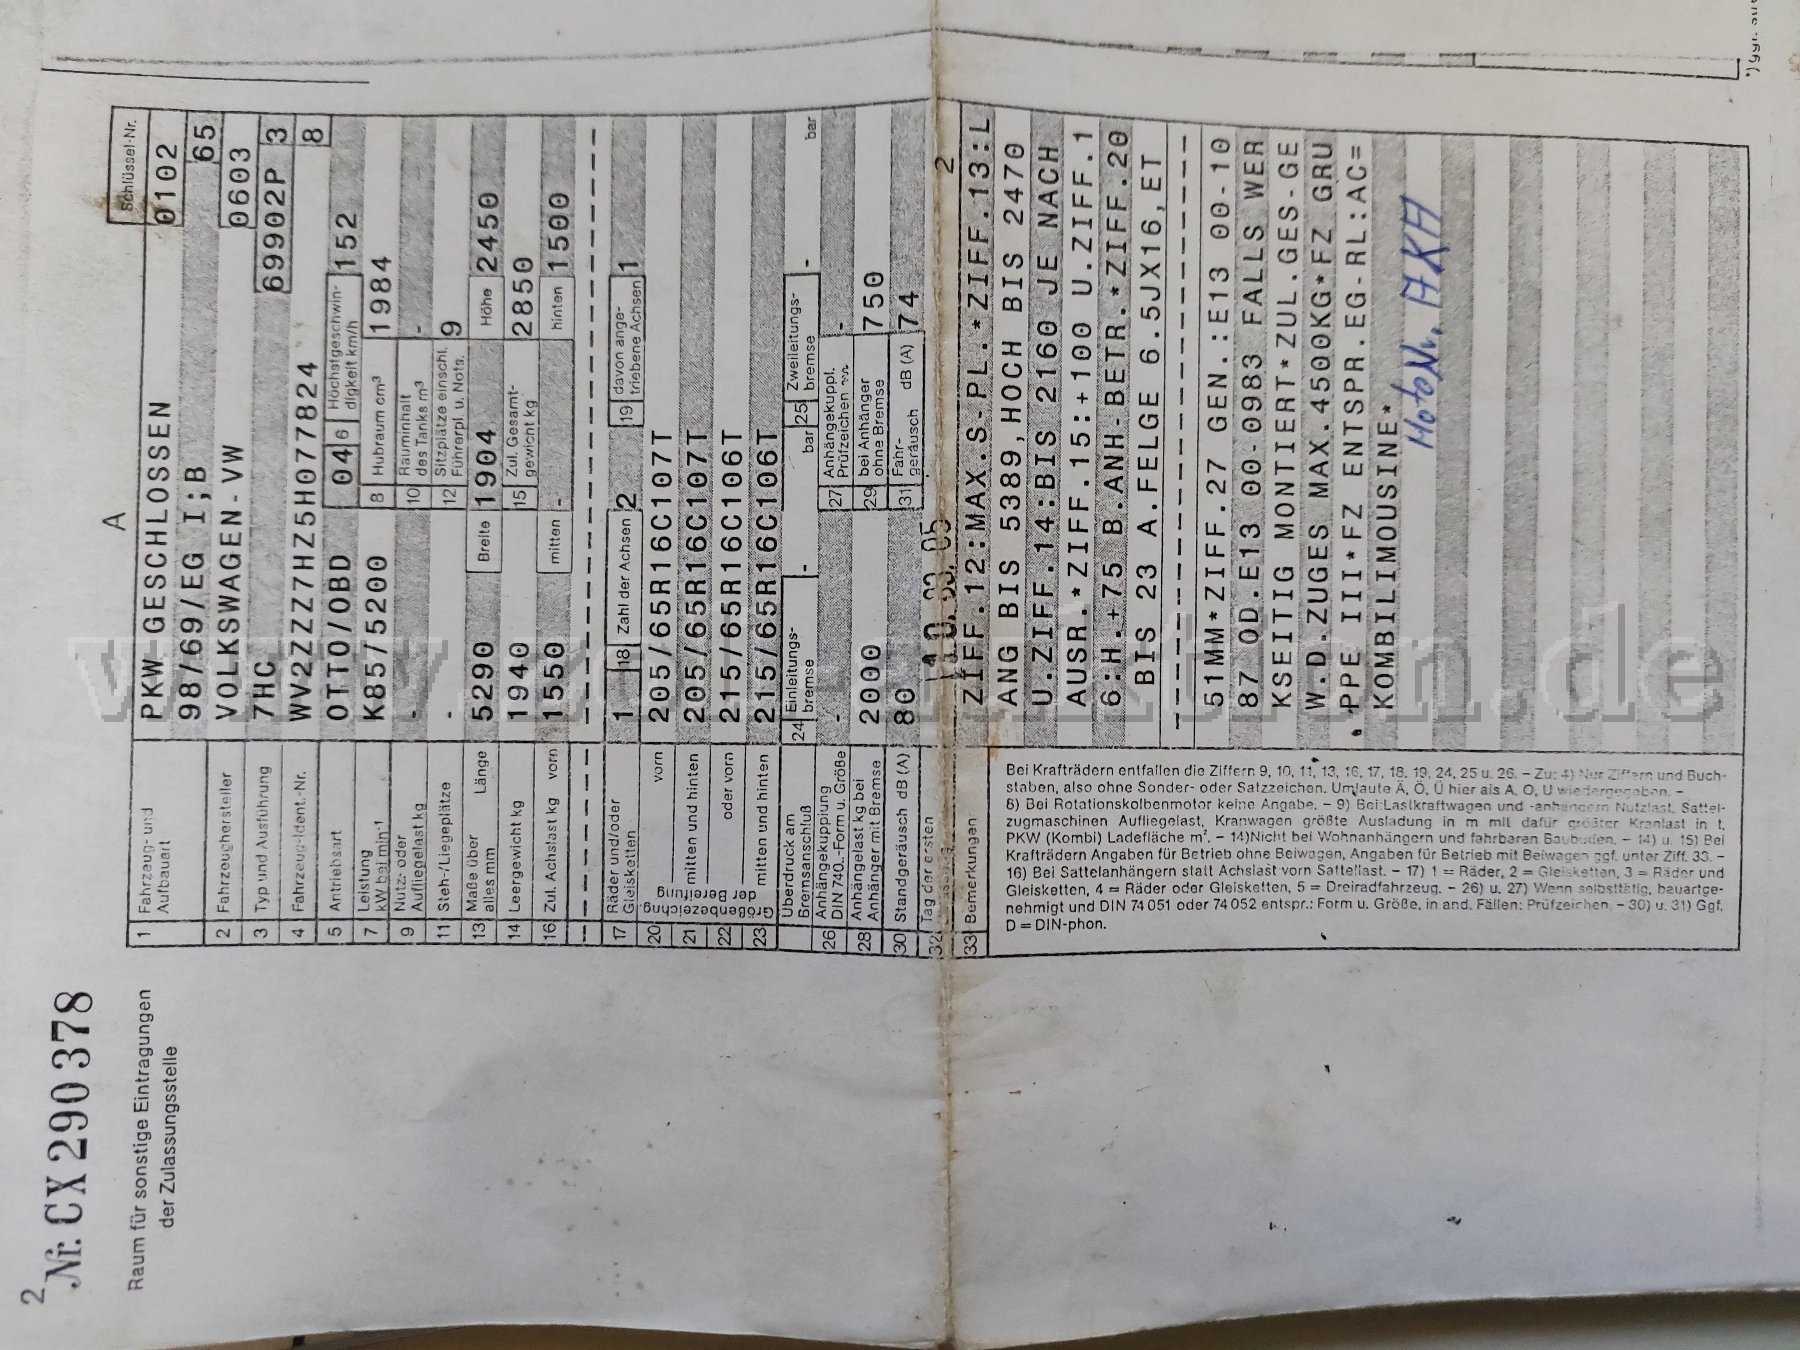 2
Nr. CX 290378
Raum für sonstige Eintragungen
der Zulassungsstelle
A
Schlüssel-Nr.
1 Fahrzeug- und Aufbauart PKW GESCHLOSSEN 0102
98/69/EG I;B 65
2 Fahrzeughersteller VOLKSWAGEN-VW 0603
3 Typ und Ausführung 7HC 69902P 3
4 Fahrzeug-Ident.-Nr. WV2ZZZ7HZ5H077824 8
5 Antriebsart OTTO/OBD 04 6 Höchstgeschwindigkeit km/h 152
7 Leistung kW bei min-¹ K85/5200 8 Hubraum cm³ 1984
9 Nutz- oder Aufliegelast kg - 10 Rauminhalt des Tanks m³ -
11 Steh-/Liegeplätze - 12 Sitzplätze einschl. Führerpl. u. Nots. 9
13 Maße über alles mm Länge 5290 Breite 1904 Höhe 2450
14 Leergewicht kg 1940 15 Zul. Gesamtgewicht kg 2850
16 Zul. Achslast kg vorn 1550 mitten - hinten 1500
17 Räder und/oder Gleisketten 1 18 Zahl der Achsen 2 19 davon angetriebene Achsen 1
Größenbezeichng. der Bereifung
20 vorn 205/65R16C107T
21 mitten und hinten 205/65R16C107T
22 oder vorn 215/65R16C106T
23 mitten und hinten 215/65R16C106T
Überdruck am Bremsanschluß 24 Einleitungsbremse - bar 25 Zweileitungsbremse - bar
26 Anhängekupplung DIN 740..-Form u. Größe - 27 Anhängekuppl. Prüfzeichen -
28 Anhängelast kg bei Anhänger mit Bremse 2000 29 bei Anhänger ohne Bremse 750
30 Standgeräusch dB (A) 80 31 Fahrgeräusch dB (A) 74
32 Tag der ersten 2
33 Bemerkungen
ZIFF.12:MAX.S-PL.*ZIFF.13:L
ANG BIS 5389,HOCH BIS 2470
U.ZIFF.14:BIS 2160 JE NACH
AUSR.*ZIFF.15:+100 U.ZIFF.1
6:H.+75 B.ANH-BETR.*ZIFF.20
BIS 23 A.FELGE 6.5JX16,ET
51MM*ZIFF.27 GEN.:E13 00-10
87 OD.E13 00-0983 FALLS WER
KSEITIG MONTIERT*ZUL.GES-GE
W.D.ZUGES MAX.4500KG*FZ GRU
PPE III*FZ ENTSPR.EG-RL:AC=
KOMBILIMOUSINE*
AKH
Bei Krafträdern entfallen die Ziffern 9, 10, 11, 13, 16, 17, 18, 19, 24, 25 u. 26. – Zu: 4) Nur Ziffern und Buch-
staben, also ohne Sonder- oder Satzzeichen. Umlaute Ä, Ö, Ü hier als A, O, U wiedergegeben. –
8) Bei Rotationskolbenmotor keine Angabe. – 9) Bei Lastkraftwagen und -anhängern Nutzlast, Sattel-
zugmaschinen Aufliegelast, Kranwagen größte Ausladung in m mit dafür größter Kranlast in t,
PKW (Kombi) Ladefläche m². – 14) Nicht bei Wohnanhängern und fahrbaren Baubuden. – 14) u. 15) Bei
Krafträdern Angaben für Betrieb ohne Beiwagen, Angaben für Betrieb mit Beiwagen ggf. unter Ziff. 33. –
16) Bei Sattelanhängern statt Achslast vorn Sattellast. – 17) 1 = Räder, 2 = Gleisketten, 3 = Räder und
Gleisketten, 4 = Räder oder Gleisketten, 5 = Dreiradfahrzeug. – 26) u. 27) Wenn selbsttätig, bauartge-
nehmigt und DIN 74051 oder 74052 entspr.: Form u. Größe, in and. Fällen: Prüfzeichen. – 30) u. 31) Ggf.
D = DIN-phon.